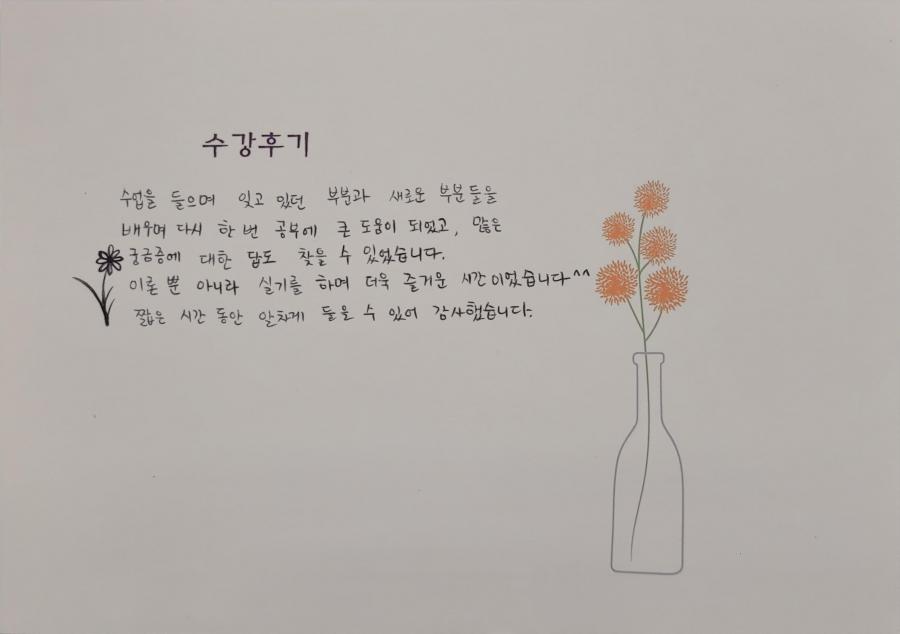 수강후기
수업을 들으며 잊고 있던 부분과 새로운 부분들을
배우며 다시 한 번 공부에 큰 도움이 되었고, 많은
궁금증에 대한 답도 찾을 수 있었습니다.
이론 뿐 아니라 실기를 하며 더욱 즐거운 시간이었습니다^^
짧은 시간 동안 알차게 들을 수 있어 감사했습니다.